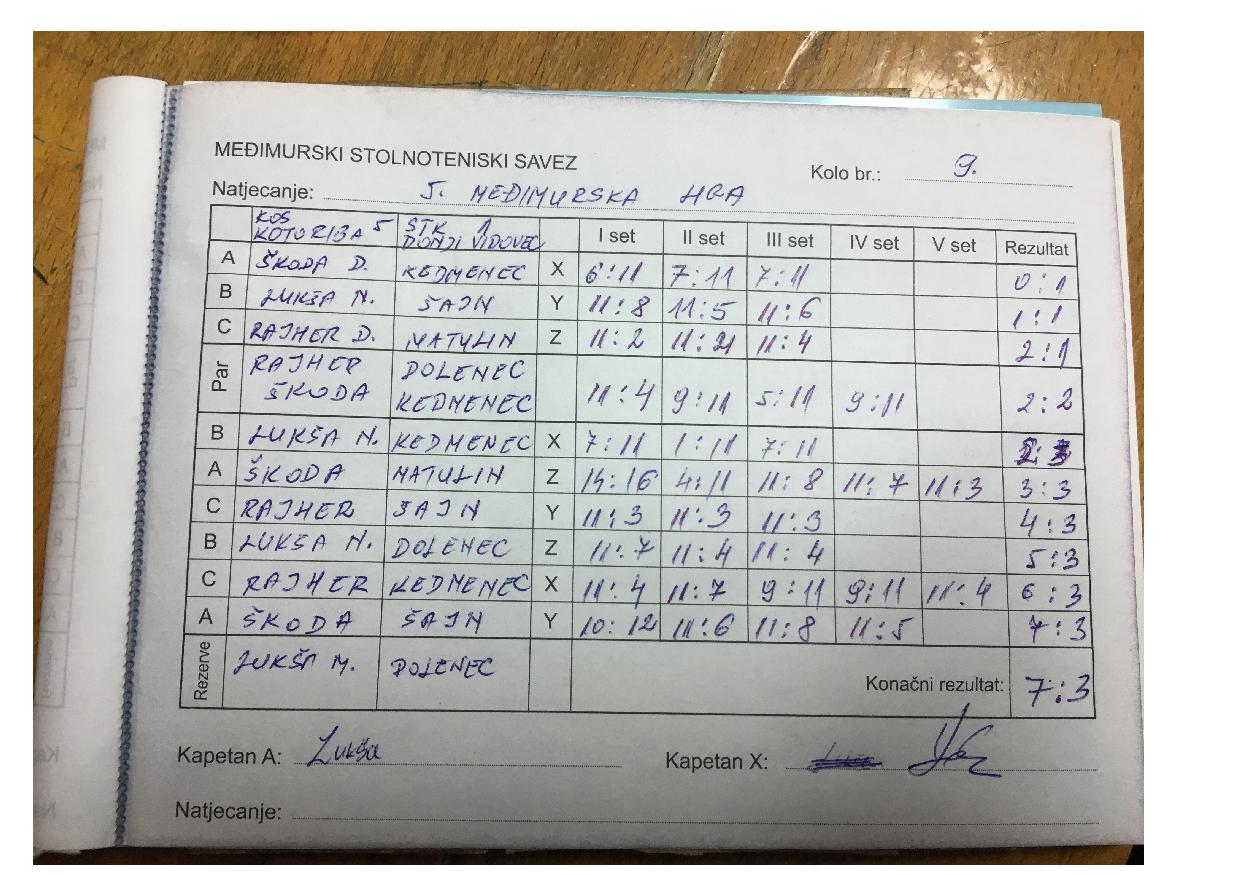 MEĐIMURSKI STOLNOTENISKI SAVEZ
Kolo br.: 9.
Natjecanje: J. MEĐIMURSKA LIGA
KOS KOTORIBA 5 STK 1 DONJI VIDOVEC I set II set III set IV set V set Rezultat
A ŠKODA D. KEDMENEC X 6:11 7:11 7:11 0:1
B LUKŠA N. ŠAJN Y 11:8 11:5 11:6 1:1
C RAJHER D. MATULIN Z 11:2 11:2 11:4 2:1
Par RAJHER DOLENEC
ŠKODA KEDMENEC 11:4 9:11 5:11 9:11 2:2
B LUKŠA N. KEDMENEC X 7:11 1:11 7:11 2:3
A ŠKODA MATULIN Z 14:16 4:11 11:8 11:7 11:3 3:3
C RAJHER ŠAJN Y 11:3 11:3 11:3 4:3
B LUKŠA N. DOLENEC Z 11:7 11:4 11:4 5:3
C RAJHER KEDMENEC X 11:4 11:7 9:11 9:11 11:4 6:3
A ŠKODA ŠAJN Y 10:12 11:6 11:8 11:5 7:3
Rezerve LUKŠA M. DOLENEC Konačni rezultat: 7:3
Kapetan A: Lukša Kapetan X:
Natjecanje: